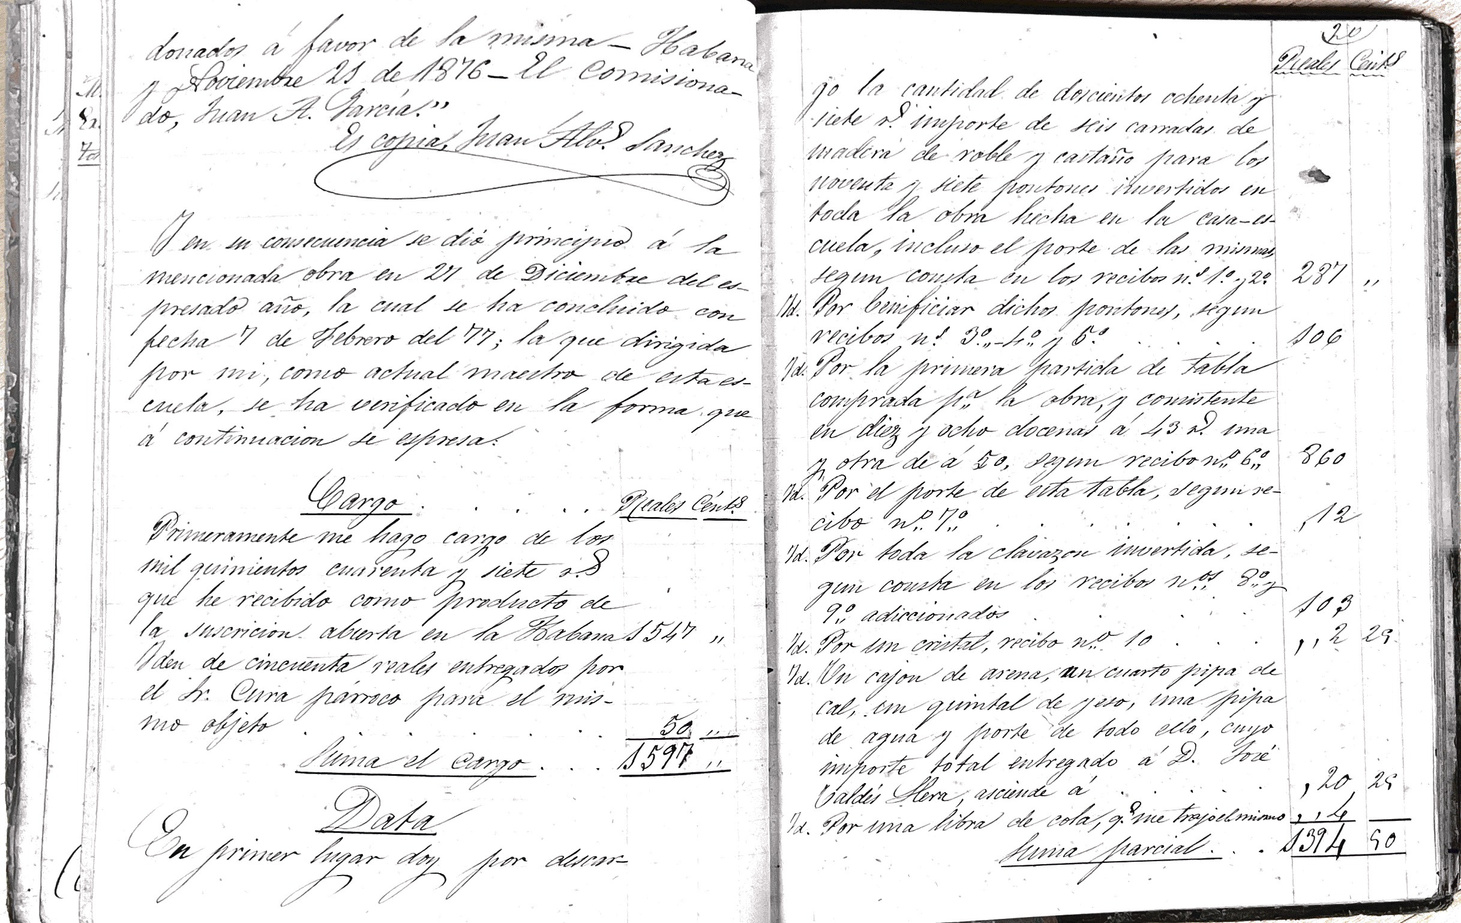 donados á favor de la misma — Habana
y Noviembre 21 de 1876 — El Comisiona-
do, Juan A. García."
Es copia, Juan Alv.z Sanchez
Y en su consecuencia se dió principio á la
mencionada obra en 27 de Diciembre del es-
presado año, la cual se ha concluido con
fecha 7 de Febrero del 77; la que dirigida
por mi, como actual maestro de esta es-
cuela, se ha verificado en la forma que
á continuacion se espresa:
Cargo . . . . . Reales Cént.s
Primeramente me hago cargo de los
mil quinientos cuarenta y siete r.s
que he recibido como producto de
la suscricion abierta en la Habana 1547 "
Iden de cincuenta reales entregados por
el Sr. Cura párroco para el mis-
mo objeto . . . . . 50 "
Suma el cargo . . . 1597 "
Data
En primer lugar doy por descar-
20
Reales Cent.s
go la cantidad de doscientos ochenta y
siete r.s importe de seis carradas de
madera de roble y castaño para los
noventa y siete pontones invertidos en
toda la obra hecha en la casa-es-
cuela, incluso el porte de las mismas,
segun consta en los recibos n.s 1.o y 2.o 287 "
Id. Por beneficiar dichos pontones, segun
recibos n.s 3.o, 4.o y 5.o . . . . 106
Id. Por la primera partida de tabla
comprada p.a la obra, y consistente
en diez y ocho docenas á 43 r.s una
y otra de á 50, segun recibo n.o 6.o 860
Id. Por el porte de esta tabla, segun re-
cibo n.o 7.o . . . . . ,12
Id. Por toda la clavazon invertida, se-
gun consta en los recibos n.os 8.o y
9.o adiccionados . . . . 103
Id. Por un cristal, recibo n.o 10 . . . ,,2 25
Id. Un cajon de arena, un cuarto pipa de
cal, un quintal de yeso, una pipa
de agua y porte de todo ello, cuyo
importe total entregado á D. José
Valdés Llera, asciende á . . . . ,20 25
Id. Por una libra de cola, q.e me trajo el mismo ,,4
Suma parcial . . . 1394 50